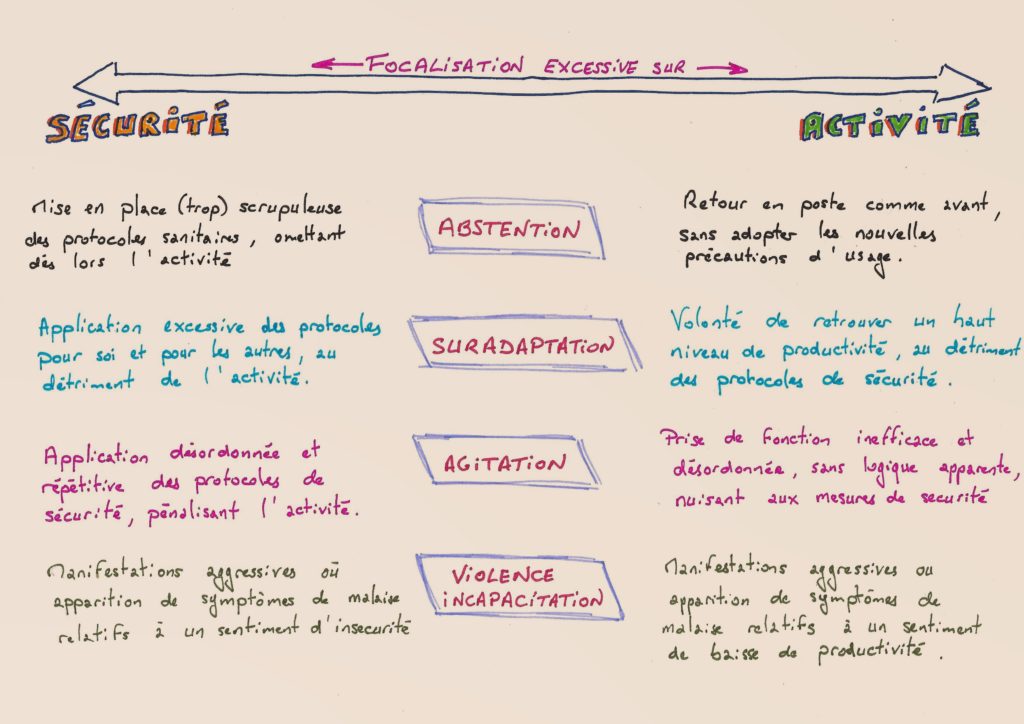 FOCALISATION EXCESSIVE SUR
SÉCURITÉ
ACTIVITÉ
Mise en place (trop) scrupuleuse
des protocoles sanitaires, omettant
dès lors l'activité
ABSTENTION
Retour en poste comme avant,
sans adopter les nouvelles
précautions d'usage.
Application excessive des protocoles
pour soi et pour les autres, au
détriment de l'activité.
SURADAPTATION
Volonté de retrouver un haut
niveau de productivité, au détriment
des protocoles de sécurité.
Application désordonnée et
répétitive des protocoles de
sécurité, pénalisant l'activité.
AGITATION
Prise de fonction inefficace et
désordonnée, sans logique apparente,
nuisant aux mesures de securité
Manifestations aggressives où
apparition de symptômes de malaise
relatifs à un sentiment d'insecurité
VIOLENCE
INCAPACITATION
Manifestations aggressives ou
apparition de symptômes de
malaise relatifs à un sentiment
de baisse de productivité.